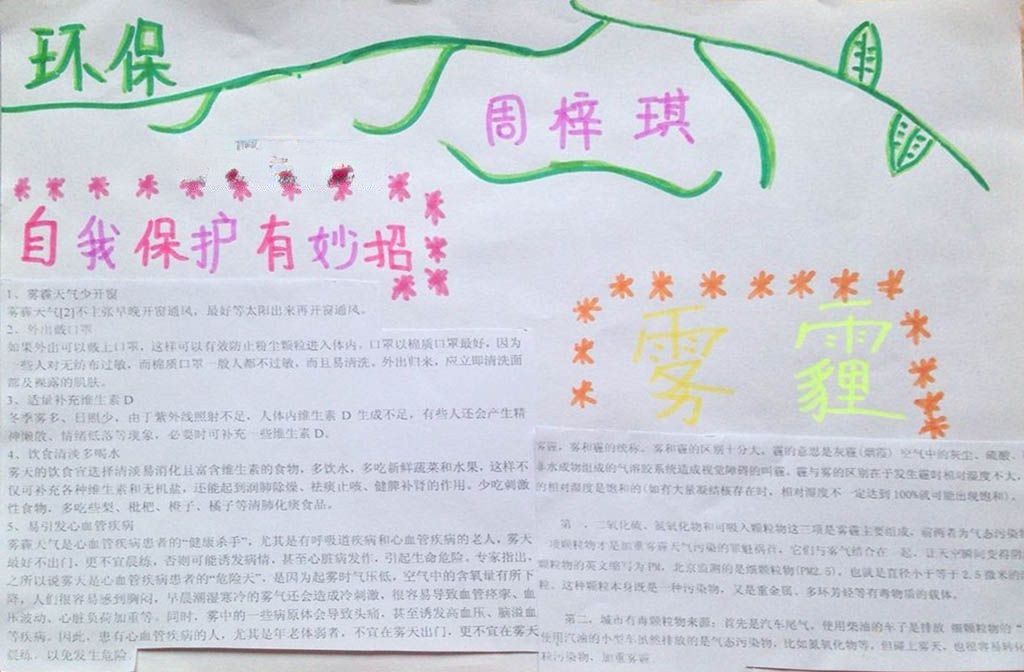 环保
周梓琪
自我保护有妙招
1、雾霾天气少开窗
雾霾天气[2]不主张早晚开窗通风，最好等太阳出来再开窗通风。
2、外出戴口罩
如果外出可以戴上口罩，这样可以有效防止粉尘颗粒进入体内。口罩以棉质口罩最好，因为
一些人对无纺布过敏，而棉质口罩一般人都不过敏，而且易清洗。外出归来，应立即清洗面
部及裸露的肌肤。
3、适量补充维生素D
冬季雾多、日照少，由于紫外线照射不足，人体内维生素 D 生成不足，有些人还会产生精
神懒散、情绪低落等现象，必要时可补充一些维生素 D。
4、饮食清淡多喝水
雾天的饮食宜选择清淡易消化且富含维生素的食物，多饮水，多吃新鲜蔬菜和水果，这样不
仅可补充各种维生素和无机盐，还能起到润肺除燥、祛痰止咳、健脾补肾的作用。少吃刺激
性食物，多吃些梨、枇杷、橙子、橘子等清肺化痰食品。
5、易引发心血管疾病
雾霾天气是心血管疾病患者的“健康杀手”，尤其是有呼吸道疾病和心血管疾病的老人，雾天
最好不出门，更不宜晨练，否则可能诱发病情，甚至心脏病发作，引起生命危险。专家指出，
之所以说雾天是心血管疾病患者的“危险天”，是因为起雾时气压低，空气中的含氧量有所下
降，人们很容易感到胸闷，早晨潮湿寒冷的雾气还会造成冷刺激，很容易导致血管痉挛、血
压波动、心脏负荷加重等。同时，雾中的一些病原体会导致头痛，甚至诱发高血压、脑溢血
等疾病。因此，患有心血管疾病的人，尤其是年老体弱者，不宜在雾天出门，更不宜在雾天
晨练，以免发生危险。
雾霾
雾霾，雾和霾的统称。雾和霾的区别十分大。霾的意思是灰霾(烟霞) 空气中的灰尘、硫酸、
非水成物组成的气溶胶系统造成视觉障碍的叫霾。霾与雾的区别在于发生霾时相对湿度不大，
的相对湿度是饱和的(如有大量凝结核存在时，相对湿度不一定达到 100%就可能出现饱和)。
第一，二氧化硫、氮氧化物和可吸入颗粒物这三项是雾霾主要组成，前两者为气态污染
项颗粒物才是加重雾霾天气污染的罪魁祸首，它们与雾气结合在一起，让天空瞬间变得阴
颗粒物的英文缩写为 PM，北京监测的是细颗粒物(PM2.5)，也就是直径小于等于 2.5 微米的
粒。这种颗粒本身既是一种污染物，又是重金属、多环芳烃等有毒物质的载体。
第二，城市有毒颗粒物来源：首先是汽车尾气。使用柴油的车子是排放细颗粒物的“
使用汽油的小型车虽然排放的是气态污染物，比如氮氧化物等，但碰上雾天，也很容易转化
粒污染物，加重雾霾。